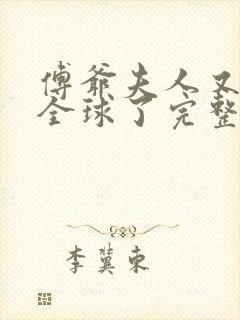 傅爷夫人又
全球了完整
李冀东